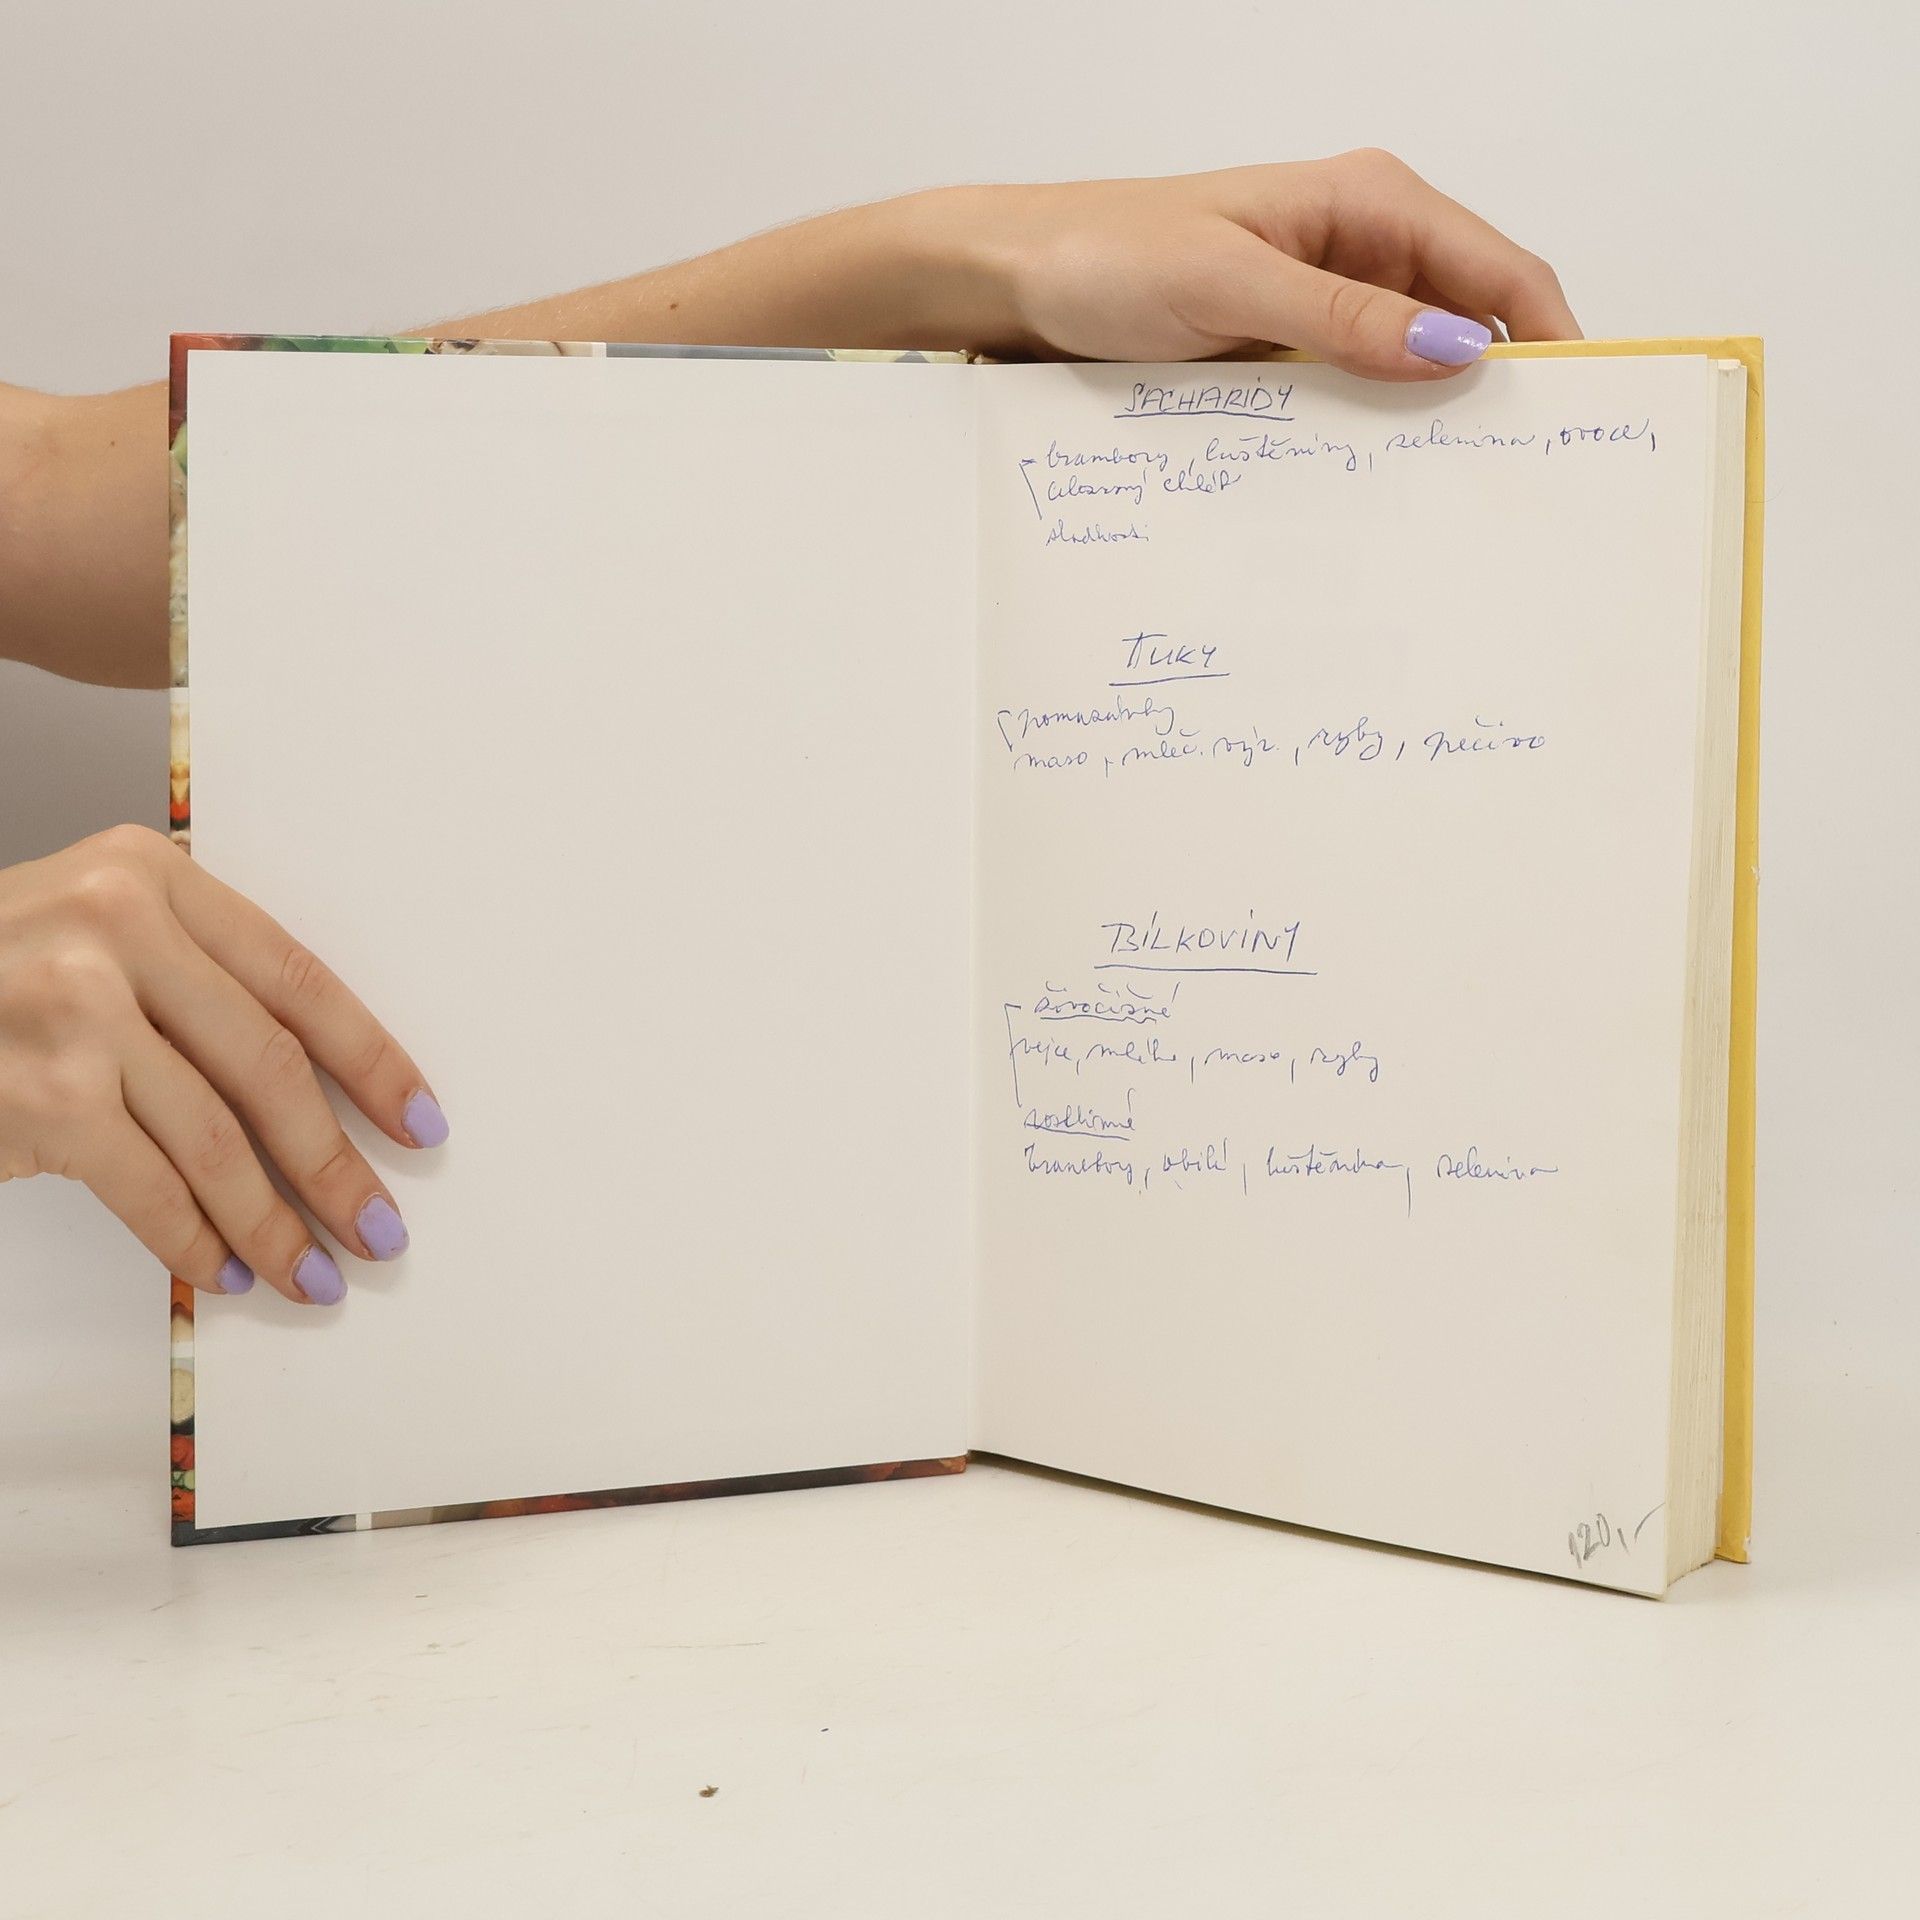 SACHARIDY
brambory, luštěniny, zelenina, ovoce,
celozrnný chléb
sladkosti
TUKY
pomazánky
maso, mléč. výr., ryby, pečivo
BÍLKOVINY
živočišné
vejce, mléko, maso, ryby
rostlinné
brambory, obilí, luštěnina, zelenina
120,-